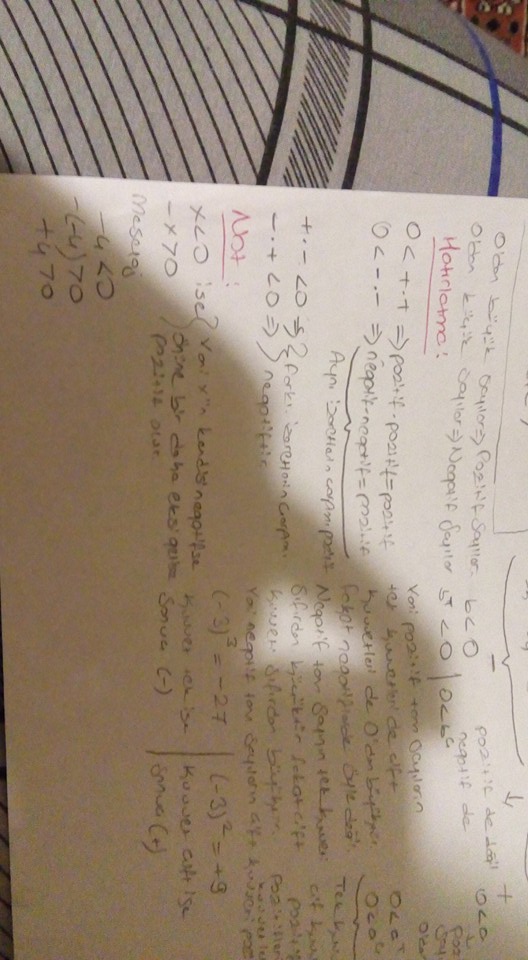 0'dan büyük sayılar => Pozitif sayılar.
0'dan küçük sayılar => Negatif sayılar
Hatırlatma!
0 < +.+ => pozitif.pozitif = pozitif
0 < -.- => negatif.negatif = pozitif
Aynı işaretlerin çarpımı pozitif
+.- < 0 =>
-.+ < 0 =>
farklı işaretlerin çarpımı
negatiftir
Not:
x<0 ise
-x>0
Yani x'in kendisi negatifse
önüne bir daha eksi gelirse
pozitif olur.
Mesela;
-4 <0
-(-4) >0
+4 >0
+
0<a
pozitif de değil
negatif de
b<0
< 0 | 0<b
Yani pozitif tam sayıların
tek kuvvetleri de çift
kuvvetleri de 0'dan büyüktür
fakat negatiflerde öyle değil
Negatif tam sayının tek kuvveti
sıfırdan küçüktür fakat çift
kuvveti sıfırdan büyüktür.
Yani negatif tam sayıların çift kuvveti
(-3)³ = -27 | (-3)² = +9
kuvvet tek ise | kuvvet çift ise
Sonuç (-) | Sonuç (+)